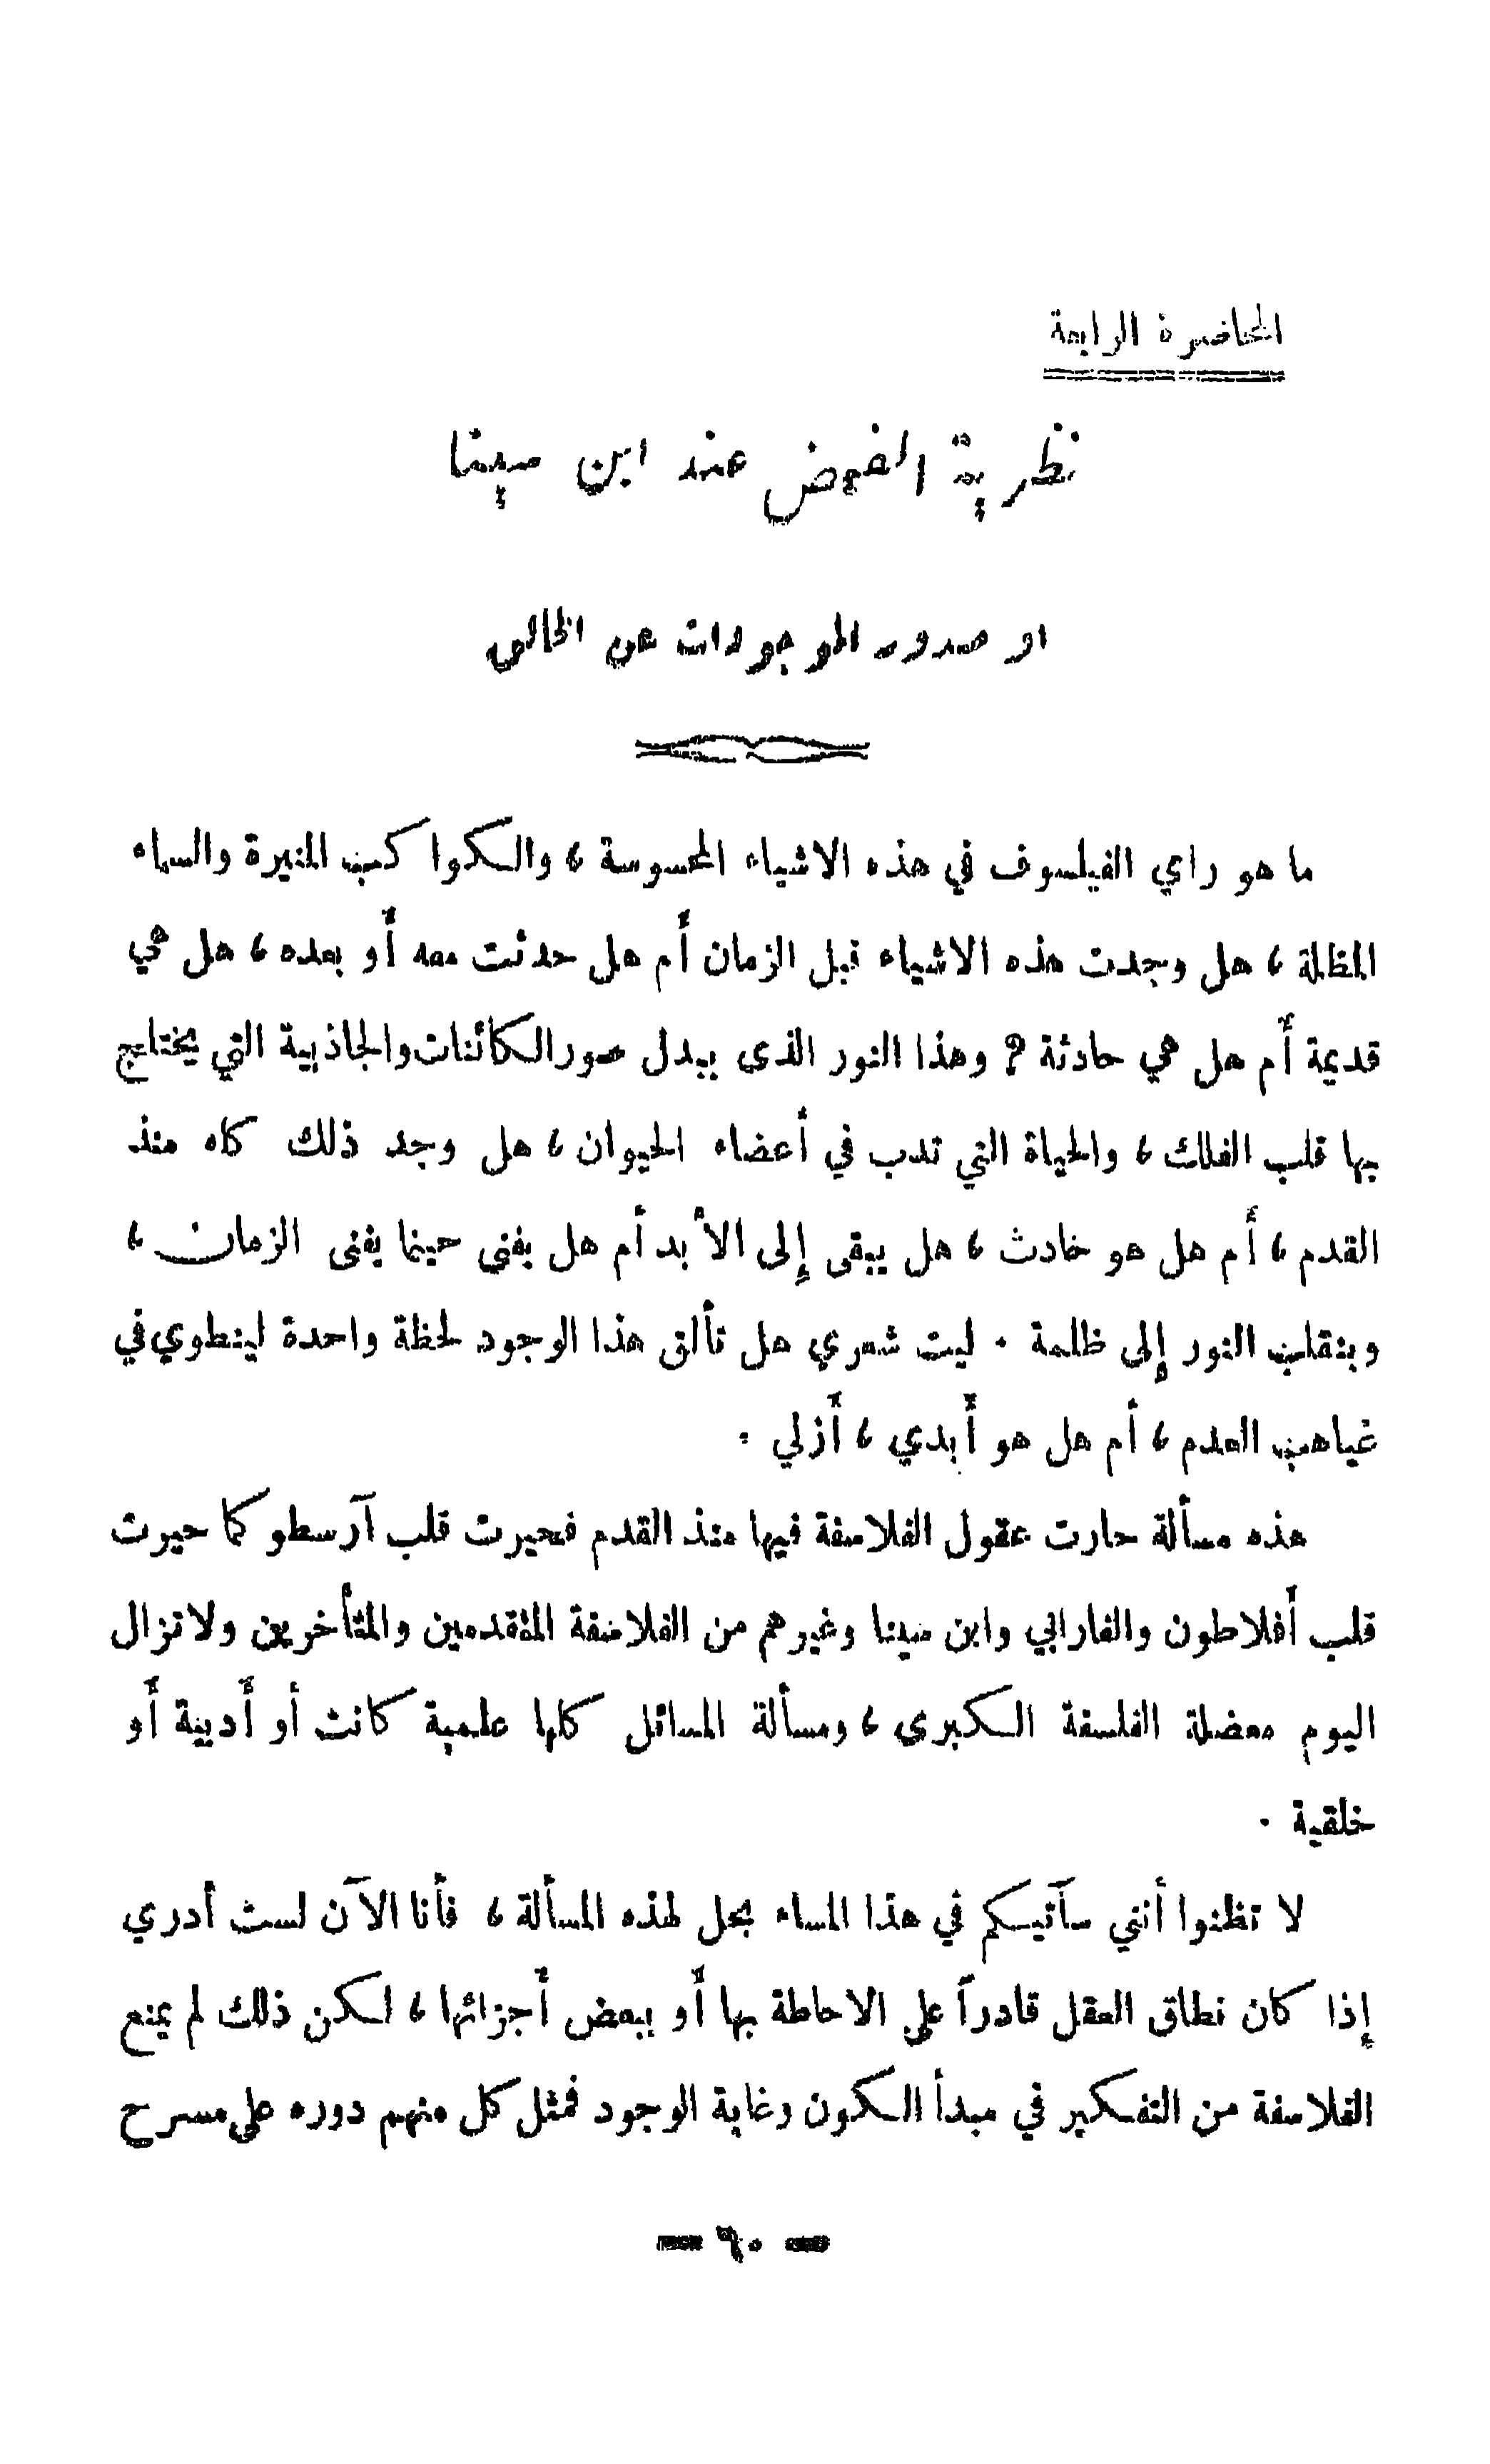 المحاضرة الرابعة
نظرية الفيض عند ابن سينا
او صدور الموجودات عن الخالق
ما هو رأي الفيلسوف في هذه الاشياء المحسوسة ، والكواكب المنيرة والسماء
المظلمة ، هل وجدت هذه الاشياء قبل الزمان أم هل حدثت معه أو بعده ، هل هي
قديمة أم هل هي حادثة ؟ وهذا النور الذى يبدل صور الكائنات والجاذبية التي يختلج
بها قلب الفلك ، والحياة التي تدب في أعضاء الحيوان ، هل وجد ذلك كله منذ
القدم ، أم هل هو حادث ، هل يبقى إلى الأبد أم هل يفنى حينما يفنى الزمان ،
وينقلب النور إلى ظلمة . ليت شعري هل تألق هذا الوجود لحظة واحدة لينطوي في
غياهب العدم ، أم هل هو أبدي ، أزلي .
هذه مسألة حارت عقول الفلاسفة فيها منذ القدم فحيرت قلب آرسطو كما حيرت
قلب أفلاطون والفارابي وابن سينا وغيرهم من الفلاسفة المتقدمين والمتأخرين ولا تزال
اليوم معضلة الفلسفة الكبرى ، ومسألة المسائل كلها علمية كانت أو أدبية أو
خلقية .
لا تظنوا أنني سآتيكم في هذا المساء بحل لهذه المسألة ، فأنا الآن لست أدري
إذا كان نطاق العقل قادراً على الاحاطة بها أو ببعض أجزائها ، لكن ذلك لم يمنع
الفلاسفة من التفكير في مبدأ الكون وغاية الوجود فمثل كل منهم دوره على مسرح
— ٦٠ —